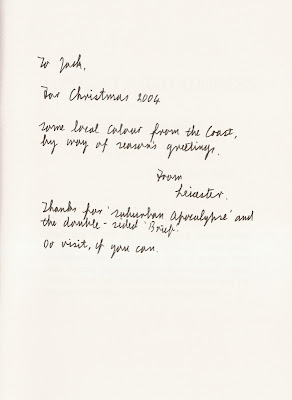 To Jack,
For Christmas 2004
Some local colour from the Coast,
by way of seasons greetings.
From
Leicester.
Thanks for 'Suburban Apocalypse' and
the double-sided 'Brief'.
Do visit, if you can.